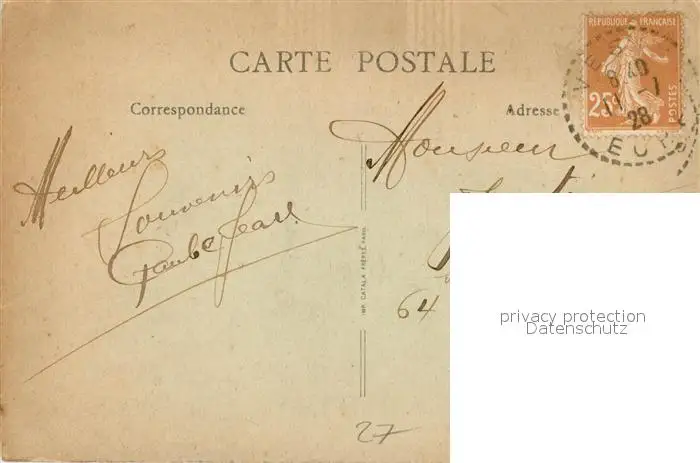 CARTE POSTALE
Correspondance
Adresse
RÉPUBLIQUE FRANÇAISE
25
POSTES
8 40
11 - 1
28
Meilleurs
Souvenirs
Monsieur
64
IMP. CATALA FRÈRES, PARIS
27
privacy protection
Datenschutz